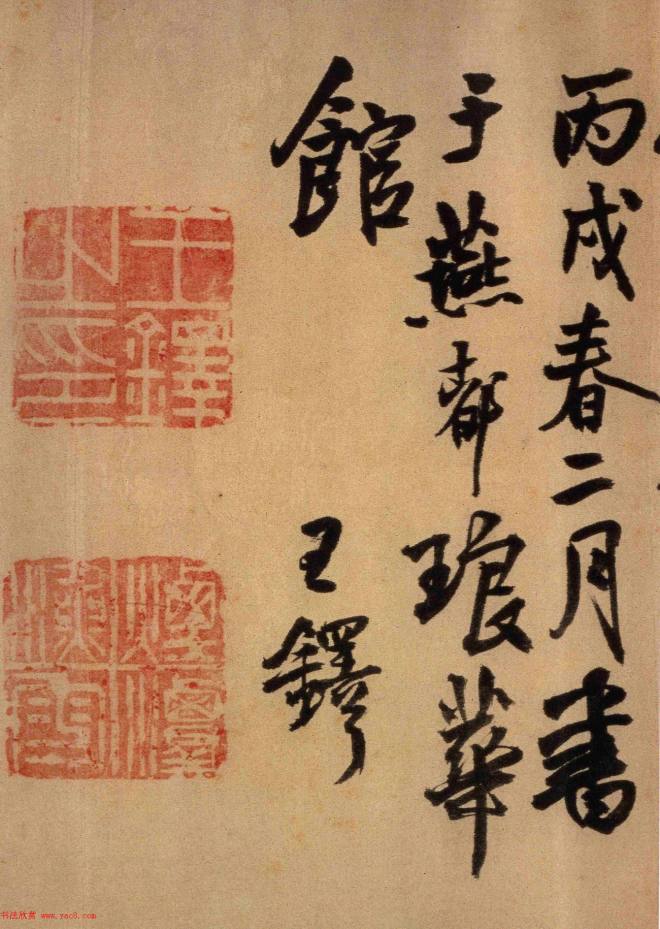 丙戌春二月書
于燕都琅華
館 王鐸
王鐸之印
书法欣赏 www.yac8.com